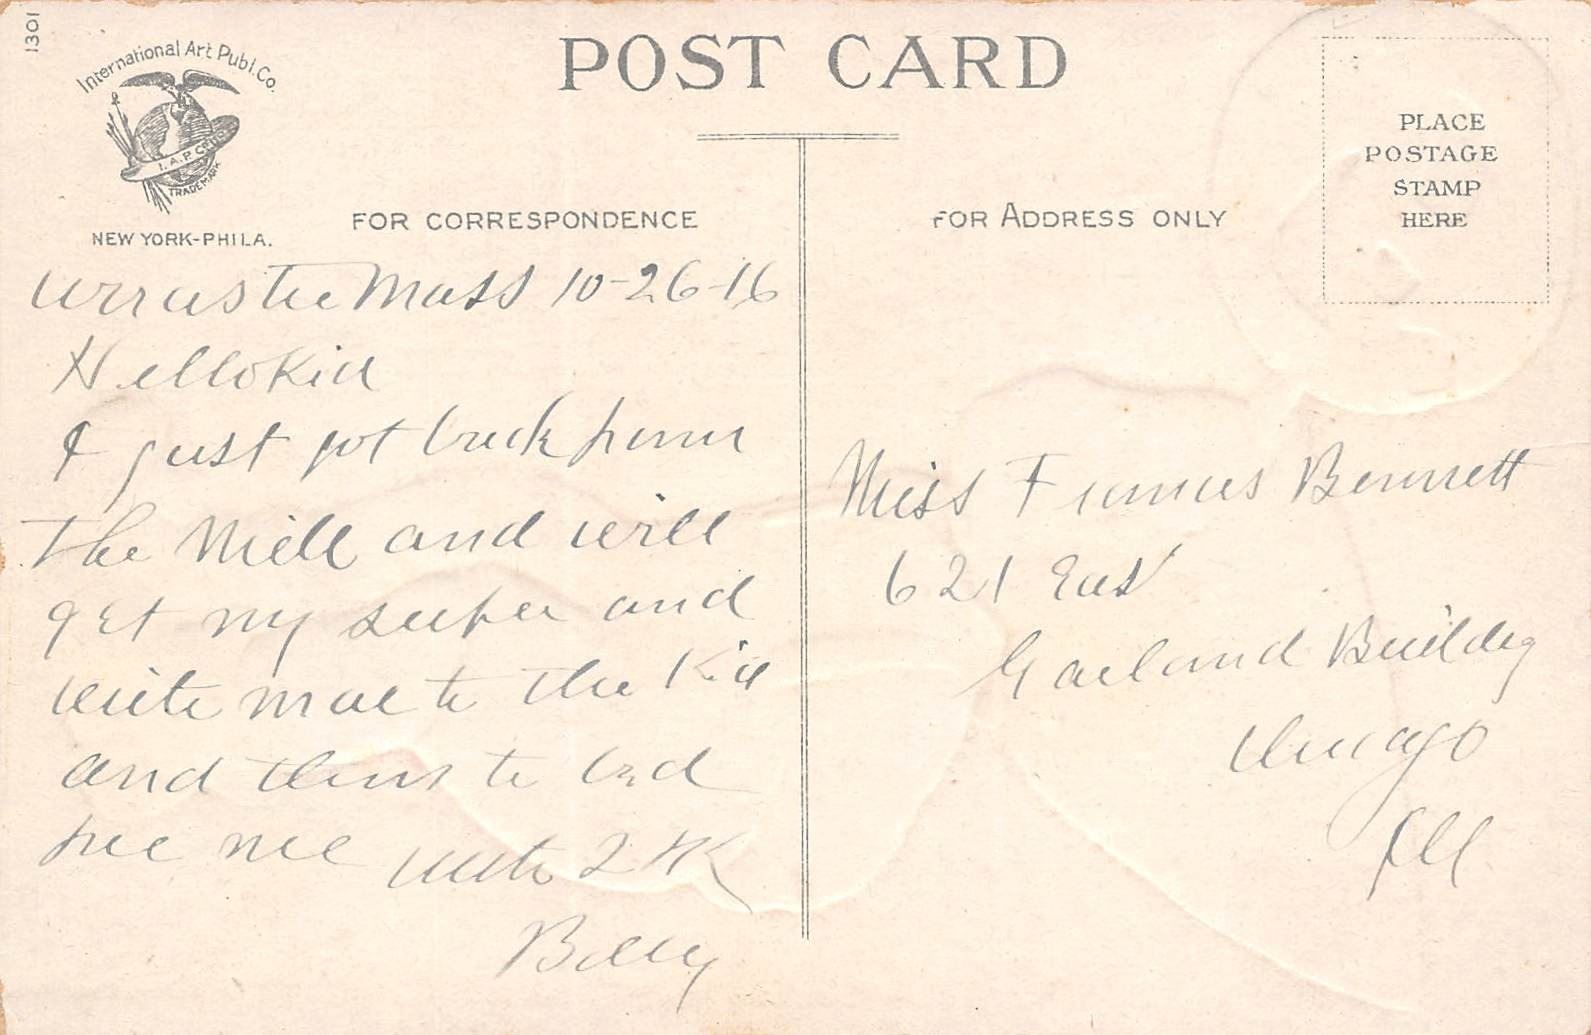 1301
International Art Publ. Co.
I. A. P. CO.
TRADE MARK
NEW YORK-PHILA.
POST CARD
FOR CORRESPONDENCE
FOR ADDRESS ONLY
PLACE
POSTAGE
STAMP
HERE
Mass 10-26-16
Hello Kid
I just got back from
the Mill and will
get my supper and
write more to the Kid
and then to bed
me with 2 K
Billy
Miss Frances Bennett
621 East
Garland Building
Chicago
Ill